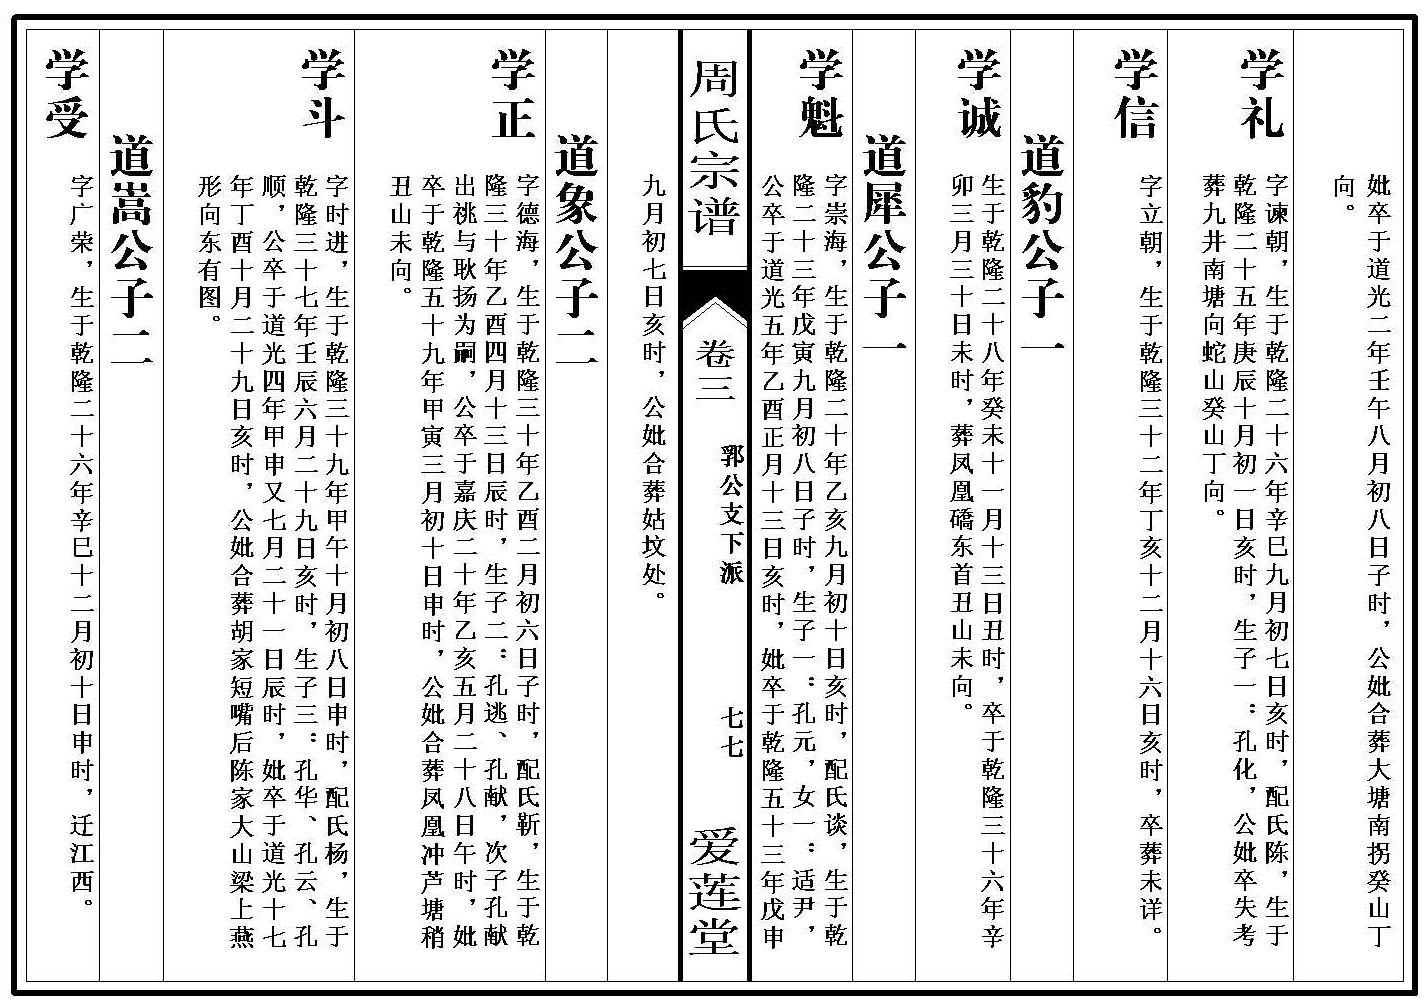 妣卒于道光二年壬午八月初八日子时，公妣合葬大塘南拐癸山丁
向。
学礼
字谏朝，生于乾隆二十六年辛巳九月初七日亥时，配氏陈，生于
乾隆二十五年庚辰十月初一日亥时，生子一：孔化，公妣卒失考
葬九井南塘向蛇山癸山丁向。
学信
字立朝，生于乾隆三十二年丁亥十二月十六日亥时，卒葬未详。
道豹公子一
学诚
生于乾隆二十八年癸未十一月十三日丑时，卒于乾隆三十六年辛
卯三月三十日未时，葬凤凰礄东首丑山未向。
道犀公子一
学魁
字崇海，生于乾隆二十年乙亥九月初十日亥时，配氏谈，生于乾
隆二十三年戊寅九月初八日子时，生子一：孔元，女一：适尹，
公卒于道光五年乙酉正月十三日亥时，妣卒于乾隆五十三年戊申
周氏宗谱
卷三
郭公支下派
七七
爱莲堂
九月初七日亥时，公妣合葬姑坟处。
道象公子二
学正
字德海，生于乾隆三十年乙酉二月初六日子时，配氏靳，生于乾
隆三十年乙酉四月十三日辰时，生子二：孔逃、孔献，次子孔献
出祧与耿扬为嗣，公卒于嘉庆二十年乙亥五月二十八日午时，妣
卒于乾隆五十九年甲寅三月初十日申时，公妣合葬凤凰冲芦塘稍
丑山未向。
学斗
字时进，生于乾隆三十九年甲午十月初八日申时，配氏杨，生于
乾隆三十七年壬辰六月二十九日亥时，生子三：孔华、孔云、孔
顺，公卒于道光四年甲申又七月二十一日辰时，妣卒于道光十七
年丁酉十月二十九日亥时，公妣合葬胡家短嘴后陈家大山梁上燕
形向东有图。
道嵩公子二
学受
字广荣，生于乾隆二十六年辛巳十二月初十日申时，迁江西。